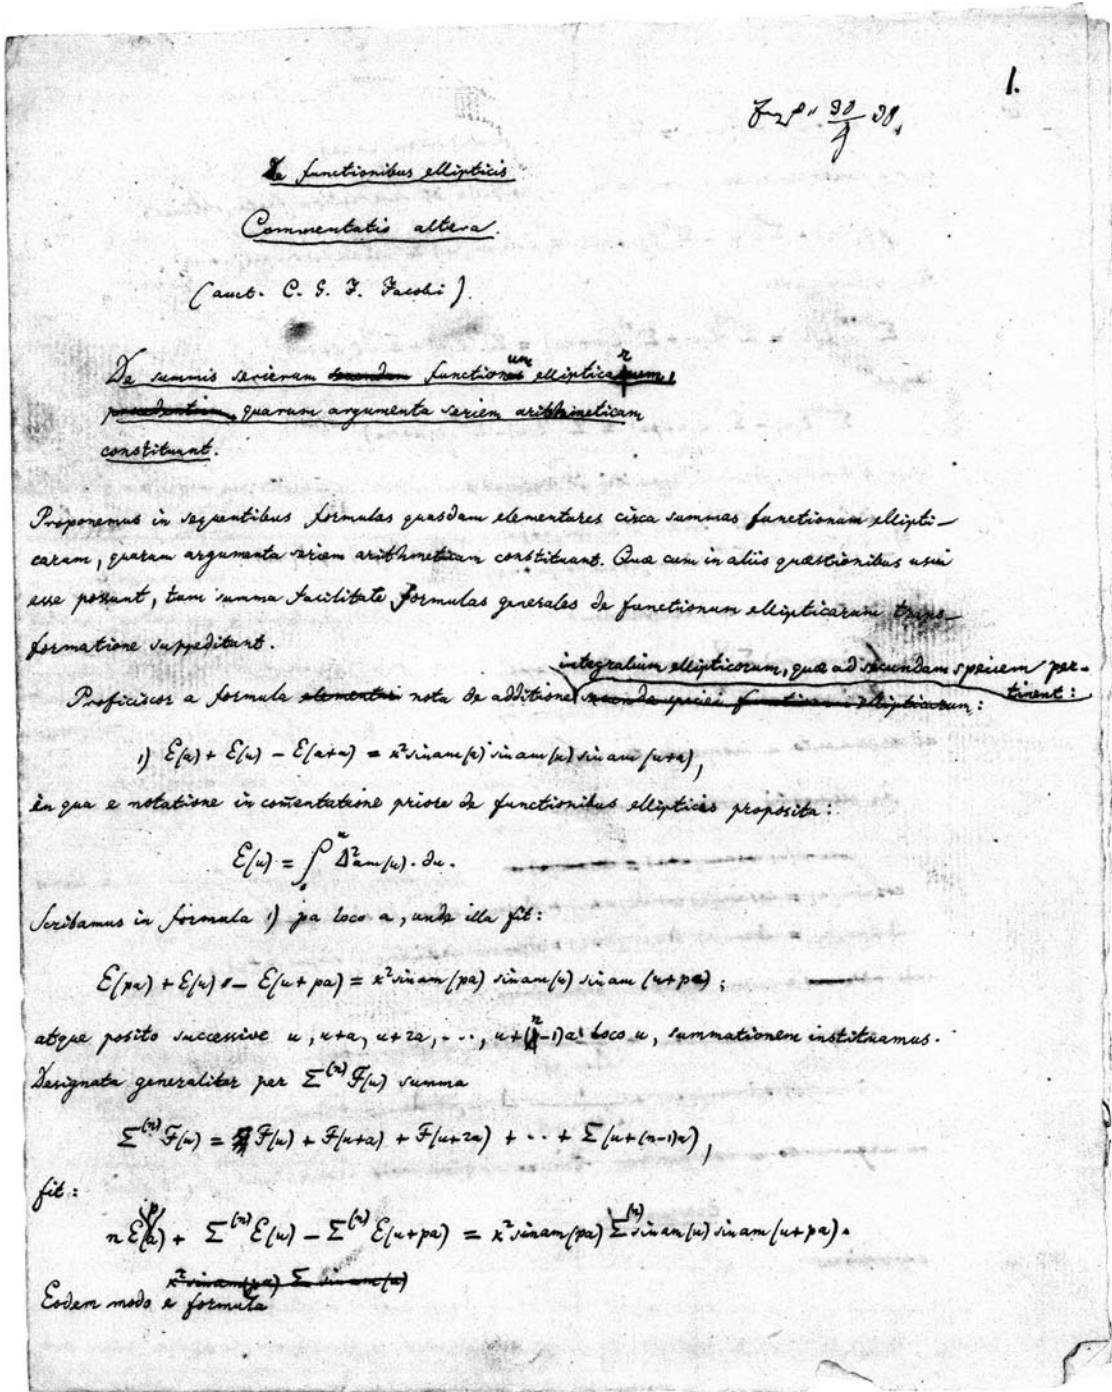 1.
De functionibus ellipticis
Commentatio altera.
(auct. C. G. J. Jacobi).
De summis serierum secundum functionum ellipticarum,
procedentium quarum argumenta seriem arithmeticam
constituunt.
Proponemus in sequentibus formulas quasdam elementares circa summas functionum ellipti-
carum, quarum argumenta seriem arithmeticam constituant. Quae cum in aliis quaestionibus usui
esse possunt, tum summa facilitate formulas generales de functionum ellipticarum trans-
formatione suppeditant.
integralium ellipticorum, quae ad secundam speciem per-
tinent:
Proficiscor a formula elementari nota de additione secundae speciei functionum ellipticarum:
1) E(a) + E(u) − E(u+a) = κ² sinam(a) sinam(u) sinam(u+a),
in qua e notatione in com̄entatione priore de functionibus ellipticis proposita:
E(u) = ∫₀ᵘ Δ²am(u)·∂u.
Scribamus in formula 1) pa loco a, unde illa fit:
E(pa) + E(u) − E(u+pa) = κ² sinam(pa) sinam(u) sinam(u+pa);
atque posito successive u, u+a, u+2a, ..., u+(n−1)a loco u, summationem instituamus.
Designata generaliter per Σ⁽ⁿ⁾F(u) summa
Σ⁽ⁿ⁾F(u) = F(u) + F(u+a) + F(u+2a) + ·· + Σ(u+(n−1)a),
fit:
n E(pa) + Σ⁽ⁿ⁾E(u) − Σ⁽ⁿ⁾E(u+pa) = κ² sinam(pa) Σ⁽ⁿ⁾sinam(u) sinam(u+pa).
κ² sinam(pa) Σ sinam(u)
Eodem modo e formula